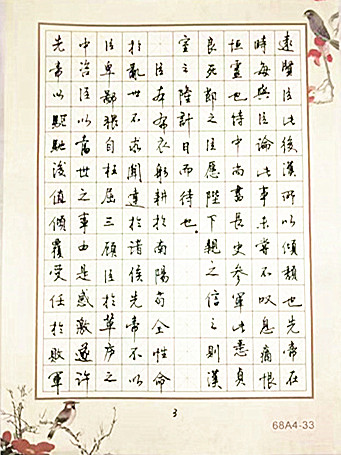 遠賢臣此後漢所以傾頹也先帝在
時每與臣論此事未嘗不叹息痛恨
恒靈也侍中尚書長史參軍此悉貞
良死節之臣應陛下親之信之則漢
室之隆計日而待也。
臣本布衣躬耕於南陽苟全性命
於亂世不求聞達於諸侯先帝不以
臣卑鄙猥自枉屈三顧臣於草廬之
中咨臣以當世之事由是感激遂許
先帝以驅馳後值傾覆受任於敗軍
3
68A4-33